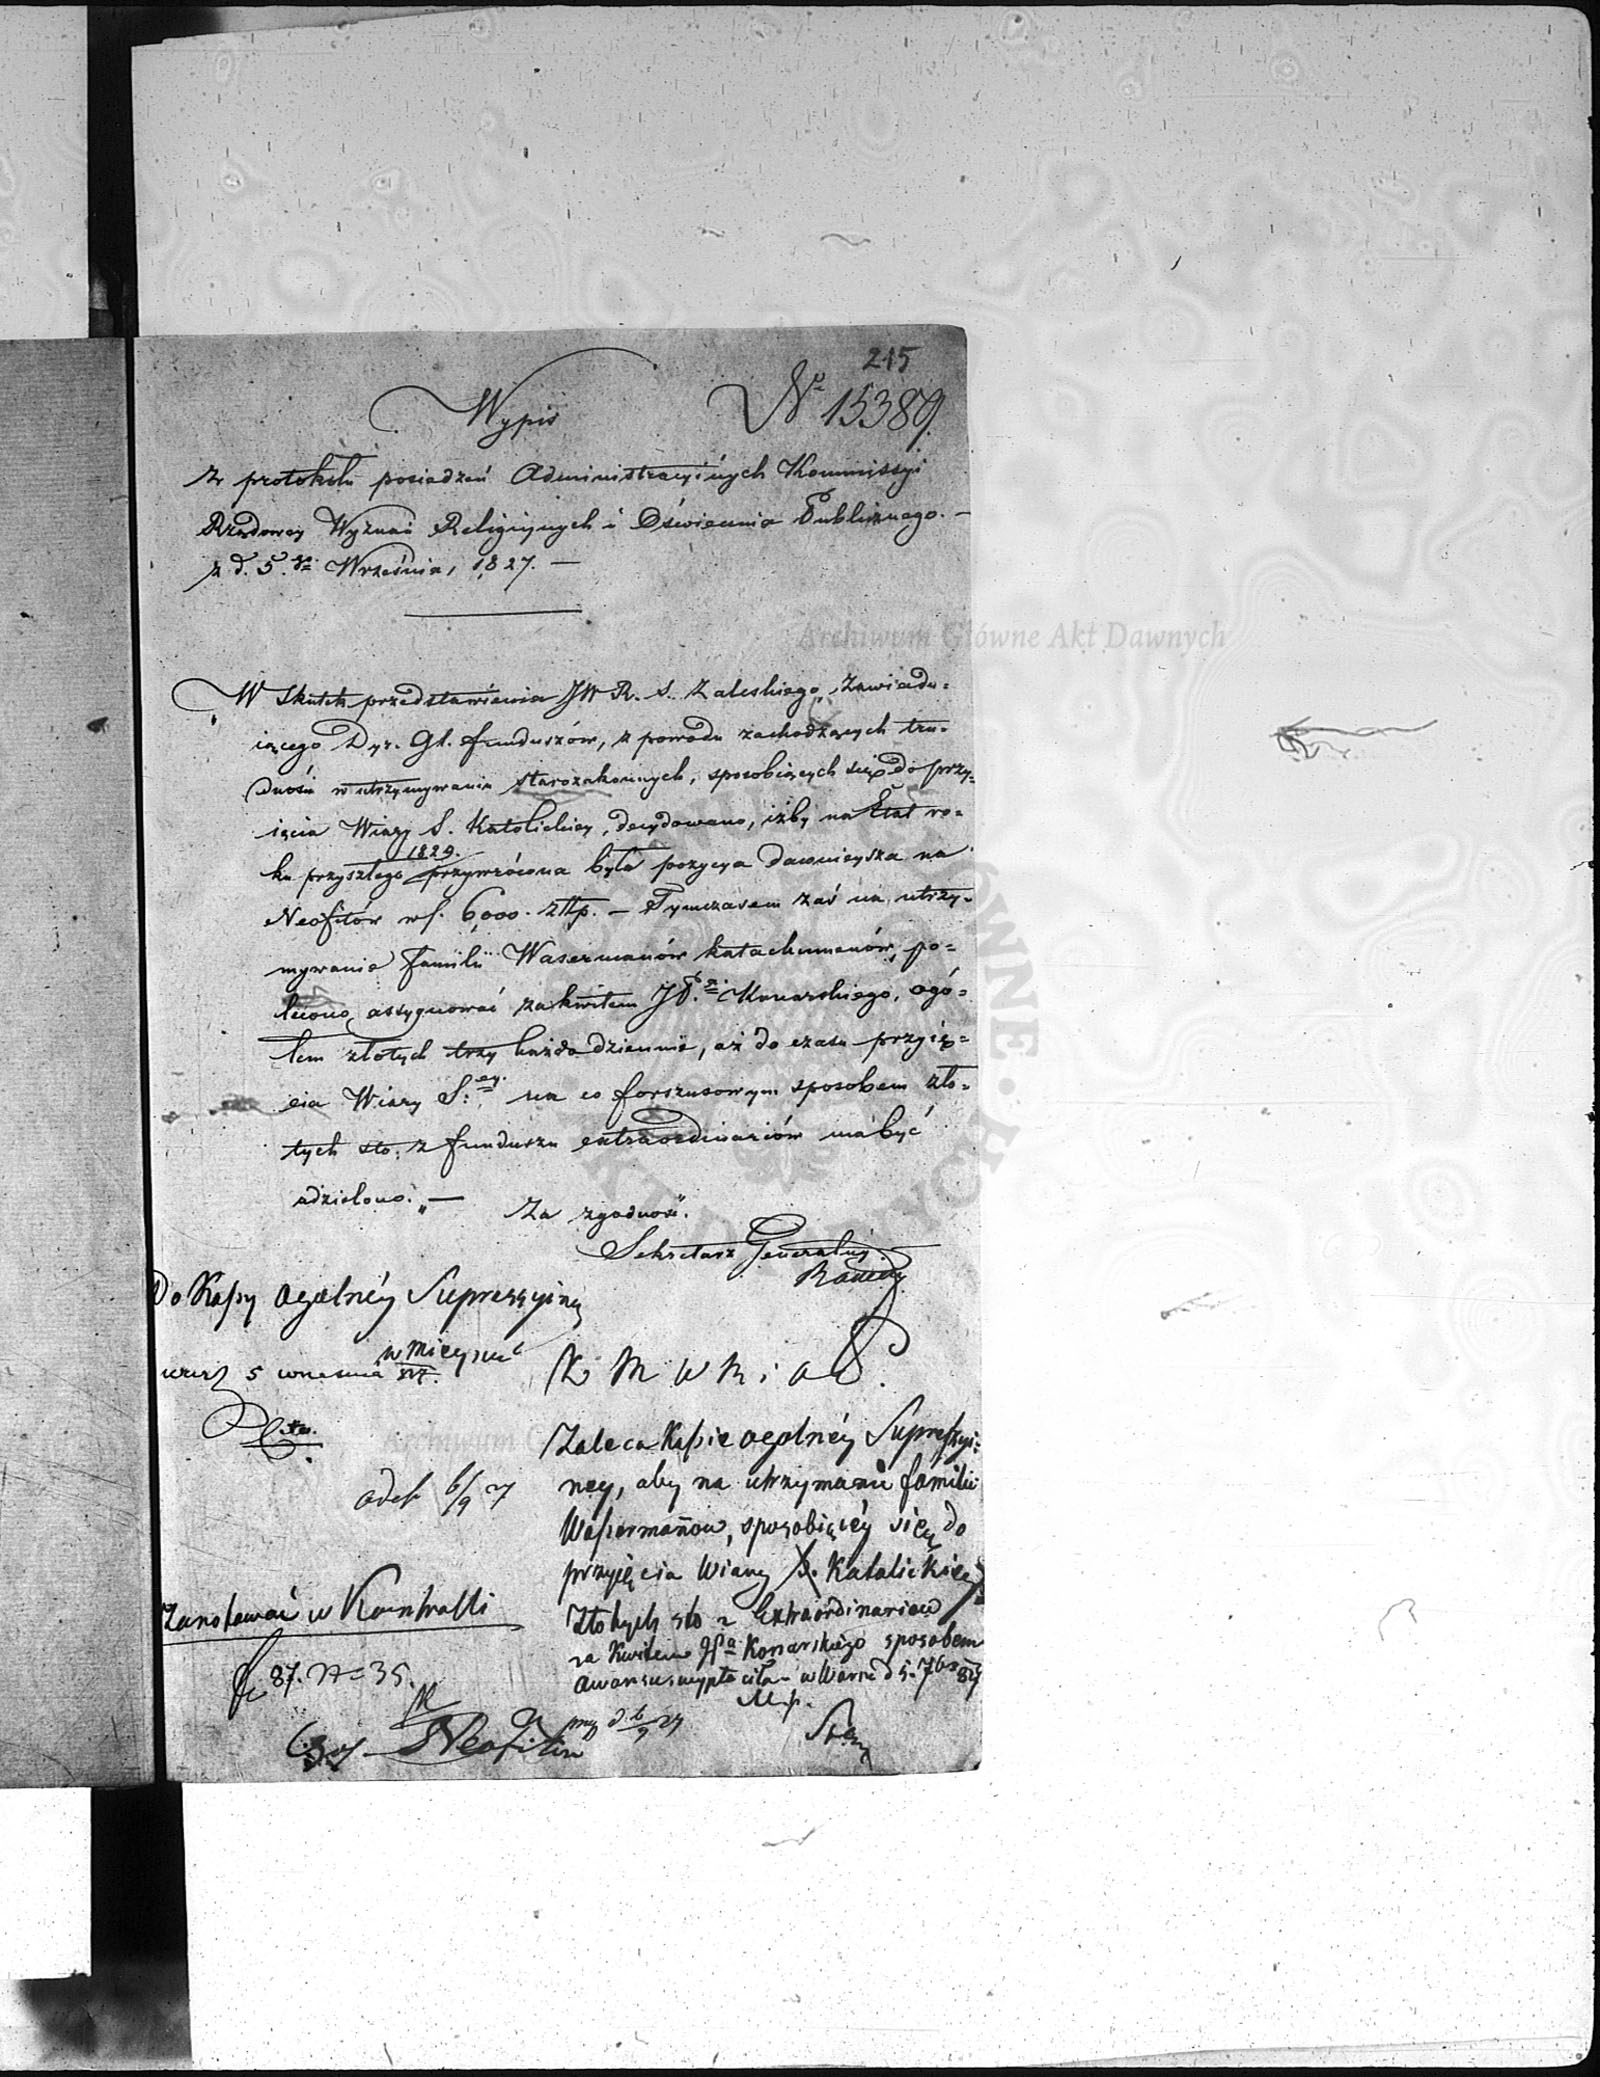 215
Wypis
Nº 15389.
Z protokółu posiedzeń Administracyinych Kommissyi
Rządowey Wyznań Religiynych i Oświecenia Publicznego. —
z d. 5. Września, 1827. —
W skutek przedstawienia JW R. S. Zaleskiego, Zawiadu-
iącego Dyr. Gl. funduszów, z powodu zachodzących tru-
dności w utrzymywaniu starozakonnych, sposobiących się do przy-
ięcia Wiary S. Katolickiey, decydowano, iżby na Etat ro-
ku przyszłego 1829. przywrócona była pozycya dawnieysza na
Neofitów wſ. 6,000. złłp. — Tymczasem zaś na utrzy-
mywanie familii Wasermanów katachumenów, po-
lecono, assygnować za kwitem JP.ª Konarskiego, ogó-
łem złotych trzy każdodziennie, aż do czasu przyię-
cia Wiary S:ey. na co forszusowym sposobem zło-
tych sto. z funduszu extraordinariów ma być
udzielono. „ —
Za zgodność.
Sekretarz Generalny.
Do Kassy Ogolnéy Suppressyiney
w Mieyscu
5 września
K R W R i O P.
Zaleca Kassie Ogolnéy Suppressyi-
ney, aby na utrzymanie familii
Wassermanow, sposobiącéy się do
przyięcia Wiary S. Katolickiey
Złotych sto z Extraordinariow
za Kwitem JPª Konarskiego sposobem
awansu wypłaciła — w Warsz d 5. 7br 827
odeb 6/9 27
Zanotować w Kontrolli
37. N= 35.
Neofitów
d 6/9 27
Archiwum Główne Akt Dawnych